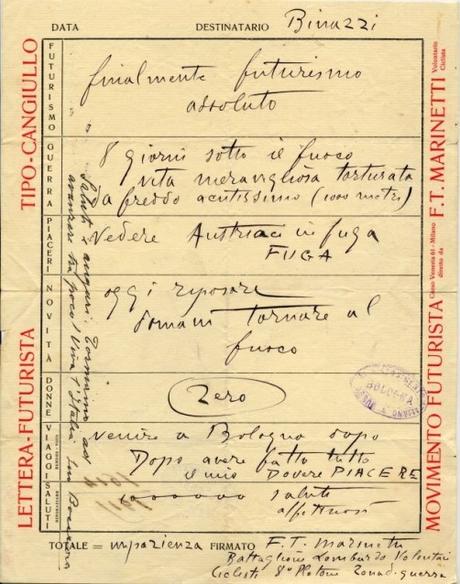 DATA DESTINATARIO Binazzi
LETTERA-FUTURISTA TIPO-CANGIULLO
FUTURISMO
finalmente futurismo
assoluto
GUERRA
8 giorni sotto il fuoco
vita meravigliosa torturata
da freddo acutissimo (1000 metri)
PIACERI
vedere Austriaci in fuga
FUGA
NOVITÀ
oggi riposare
domani tornare al
fuoco
DONNE
Zero
VIAGGI
venire a Bologna dopo
Dopo avere fatto tutto
il mio DOVERE PIACERE
SALUTI
1000000 saluti
affettuosi
TOTALE = impazienza FIRMATO F. T. Marinetti
Battaglione Lombardo Volontari
Ciclisti 8° Plotone Zona di guerra
Saluti e auguri. Torniamo ad
avanzare tra poco! Viva l'Italia
MOVIMENTO FUTURISTA diretto da F. T. MARINETTI
Corso Venezia 61 - Milano
Volontario
Ciclista